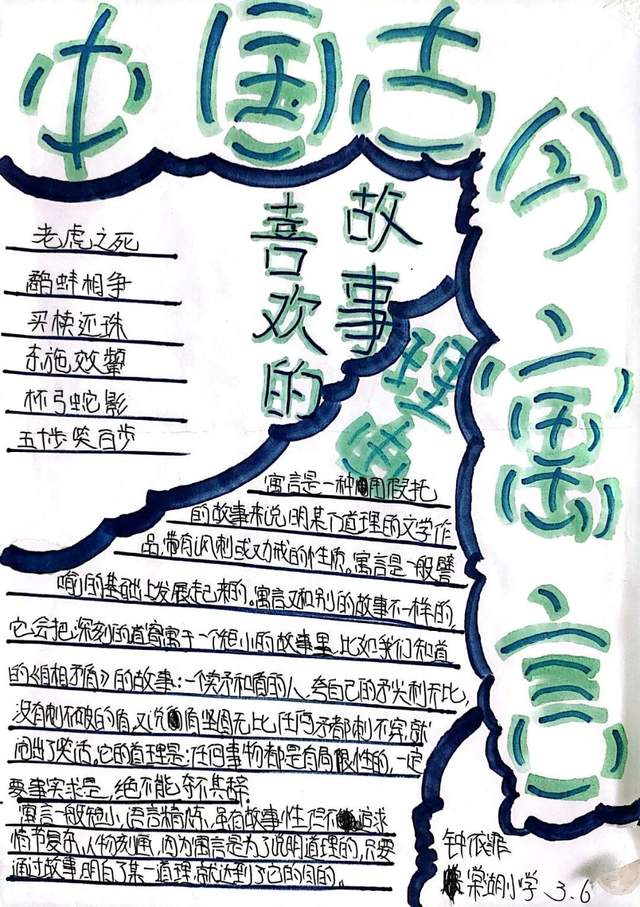 中国古今寓言
故事
喜欢的
老虎之死
鹬蚌相争
买椟还珠
东施效颦
杯弓蛇影
五十步笑百步
理
寓言是一种用假托
的故事来说明某个道理的文学作
品,带有讽刺或劝戒的性质。寓言是一般譬
喻的基础上发展起来的。寓言又和别的故事不一样的,
它会把深刻的道寓于一个短小的故事里,比如我们知道
的《自相矛盾》的故事:一个卖矛和盾的人,夸自己的矛尖利无比,
没有刺不破的盾,又说盾坚固无比,任何矛都刺不穿,就
闹出了笑话。它的道理是:任何事物都是有局限性的,一定
要事实求是,绝不能夸不其辞。
寓言一般短小,语言精炼,虽有故事性但不追求
情节复杂,人物刻画,因为寓言是为了说明道理的,只要
通过故事,明白了某一道理,就达到了它的目的。
钟依菲
棠湖小学 3.6